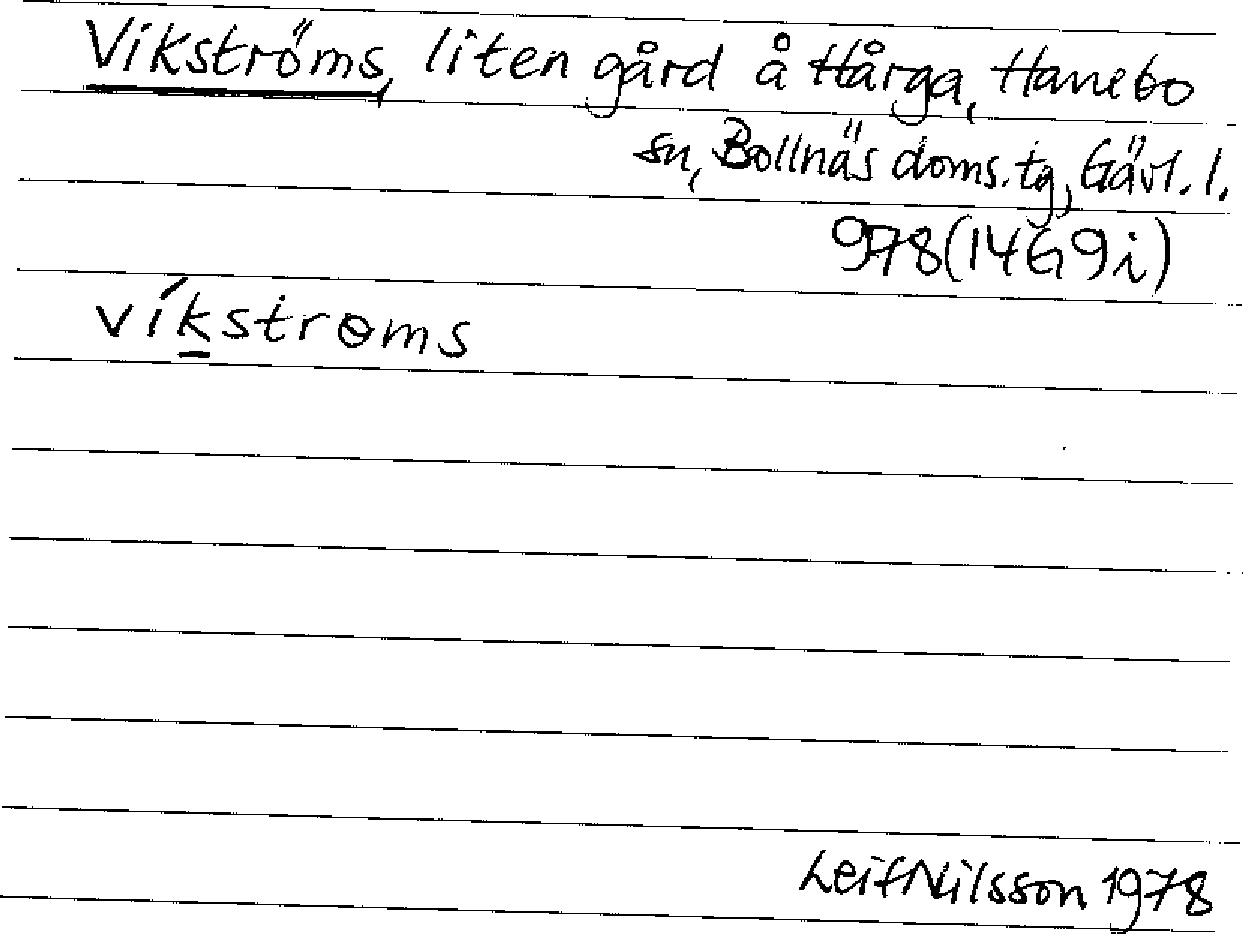 Vikströms, liten gård å Hårga, Hanebo
sn, Bollnäs doms. tg, Gävl. l.
978(14G9i)
víkstrɵms
Leif Nilsson 1978